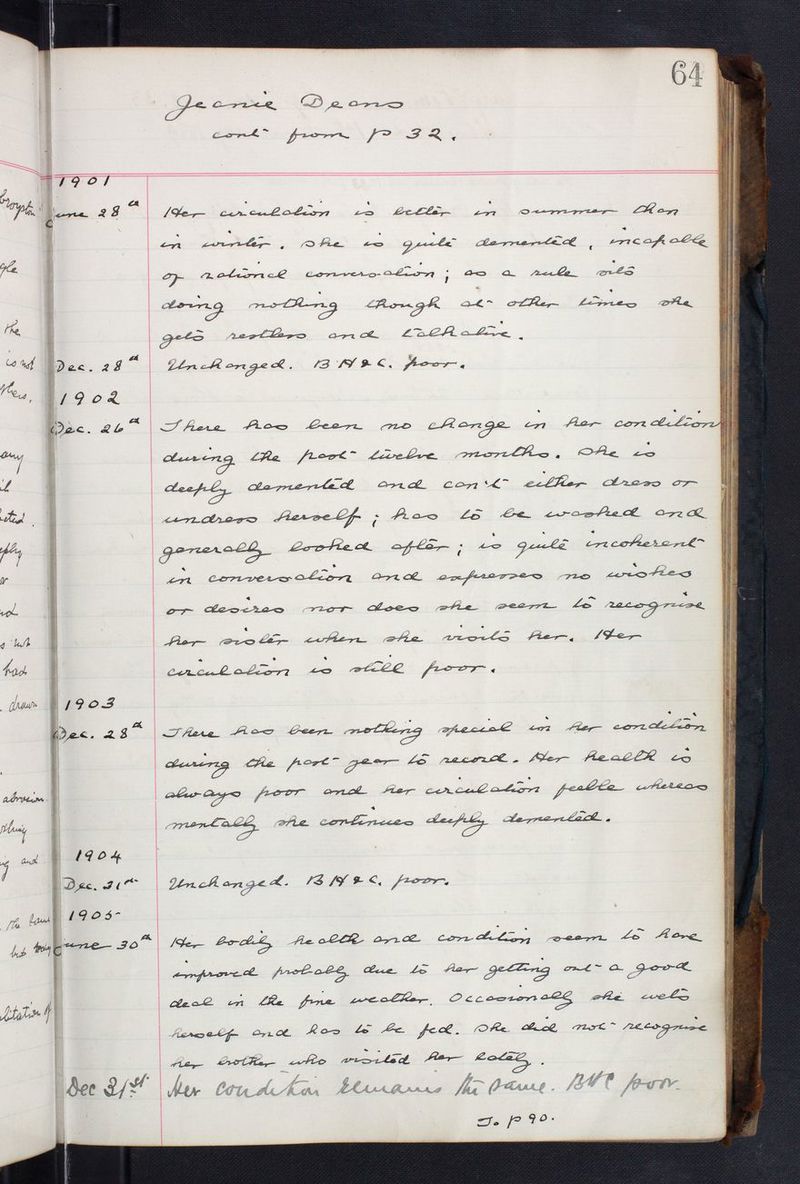 64
Jeanie Deans
cont from p 32.
1901
June 28th Her circulation is better in summer than
in winter. She is quite demented, incapable
of rational conversation; as a rule sits
doing nothing though at other times she
gets restless and talkative.
Dec. 28th Unchanged. B H & C. poor.
1902
Dec. 26th There has been no change in her condition
during the past twelve months. She is
deeply demented and can't either dress or
undress herself; has to be washed and
generally looked after; is quite incoherent
in conversation and expresses no wishes
or desires nor does she seem to recognise
her sister when she visits her. Her
circulation is still poor.
1903
Dec. 28th There has been nothing special in her condition
during the past year to record. Her health is
always poor and her circulation feeble whereas
mentally she continues deeply demented.
1904
Dec. 31st Unchanged. B H & C. poor.
1905
June 30th Her bodily health and condition seem to have
improved probably due to her getting out a good
deal in the fine weather. Occasionally she wets
herself and has to be fed. She did not recognise
her brother who visited her lately.
Dec 31st Her condition remains the same. BHC poor.
To p 90.
the
is not
any
had
drawn
and
the same